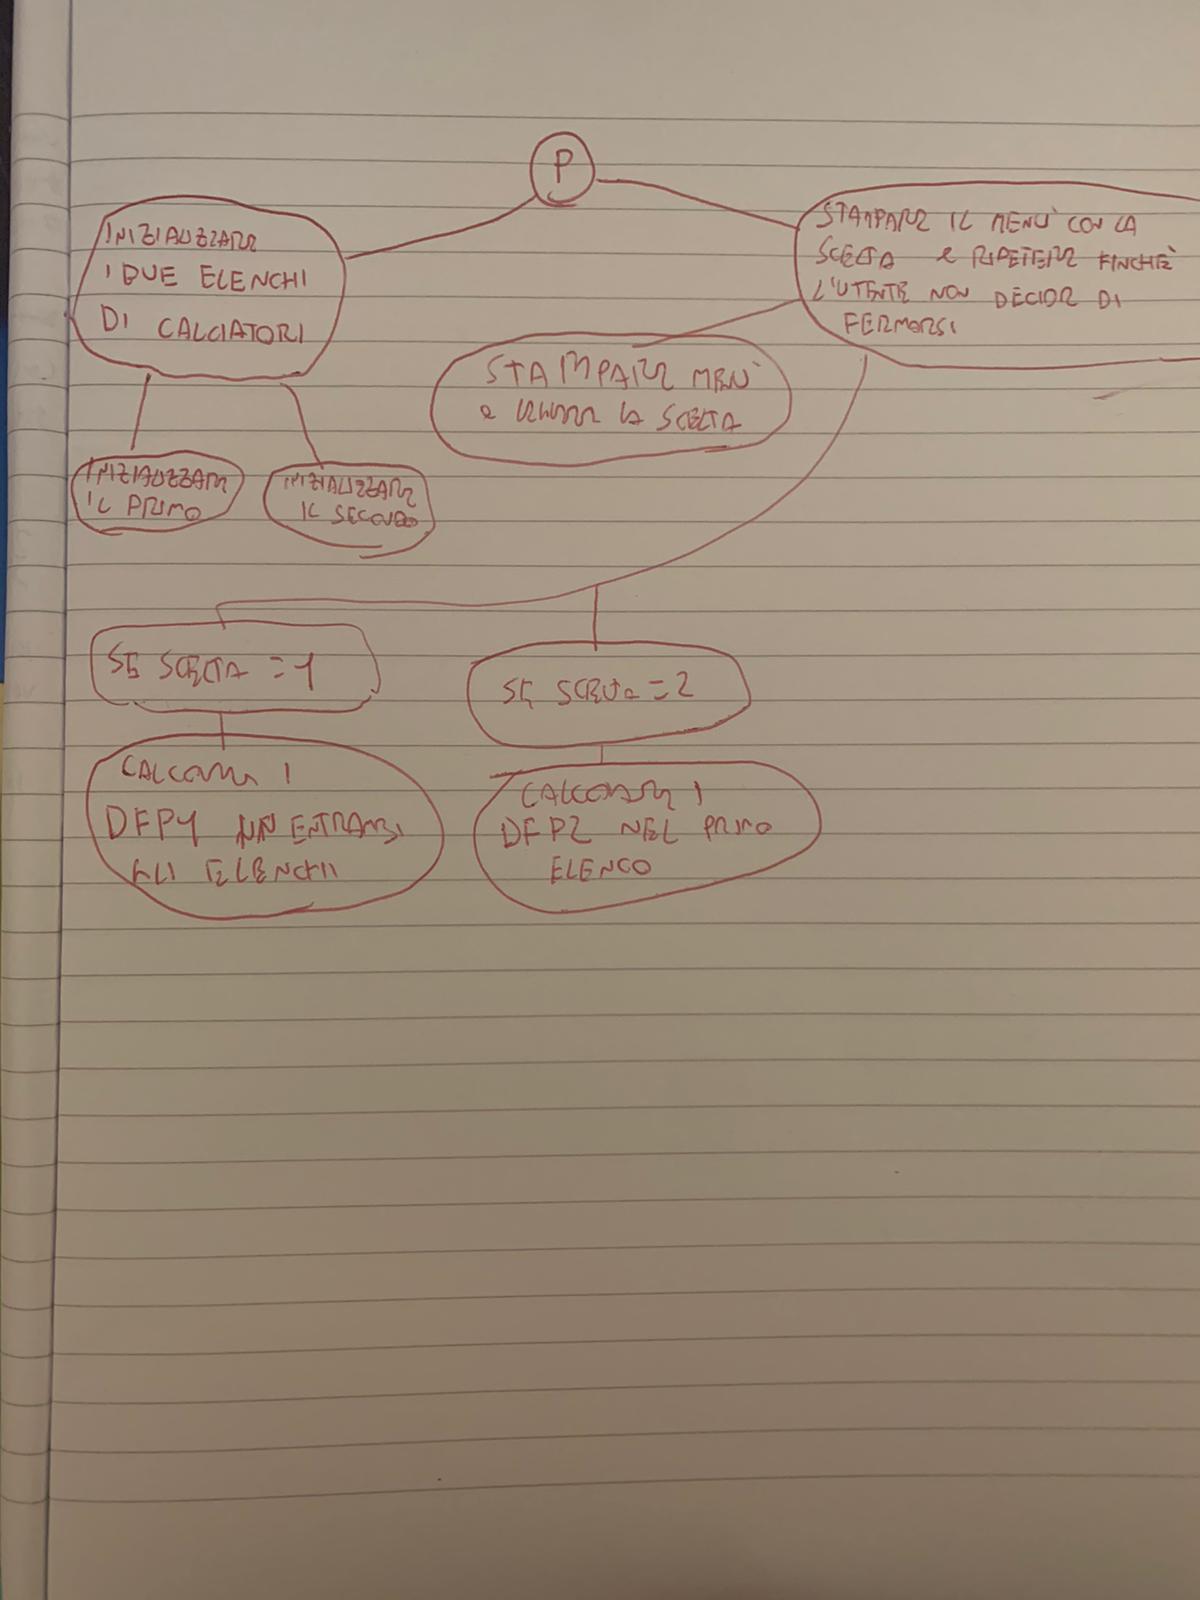 P
INIZIALIZZARE
I DUE ELENCHI
DI CALCIATORI
STAMPARE IL MENÙ CON LA
SCELTA E RIPETERE FINCHÈ
L'UTENTE NON DECIDE DI
FERMARSI
STAMPARE MENÙ
E LA SCELTA
INIZIALIZZARE
IL PRIMO
INIZIALIZZARE
IL SECONDO
SE SCELTA = 1
SE SCELTA = 2
CALCOLARE I
DFP1 IN ENTRAMBI
GLI ELENCHI
CALCOLARE I
DFP2 NEL PRIMO
ELENCO